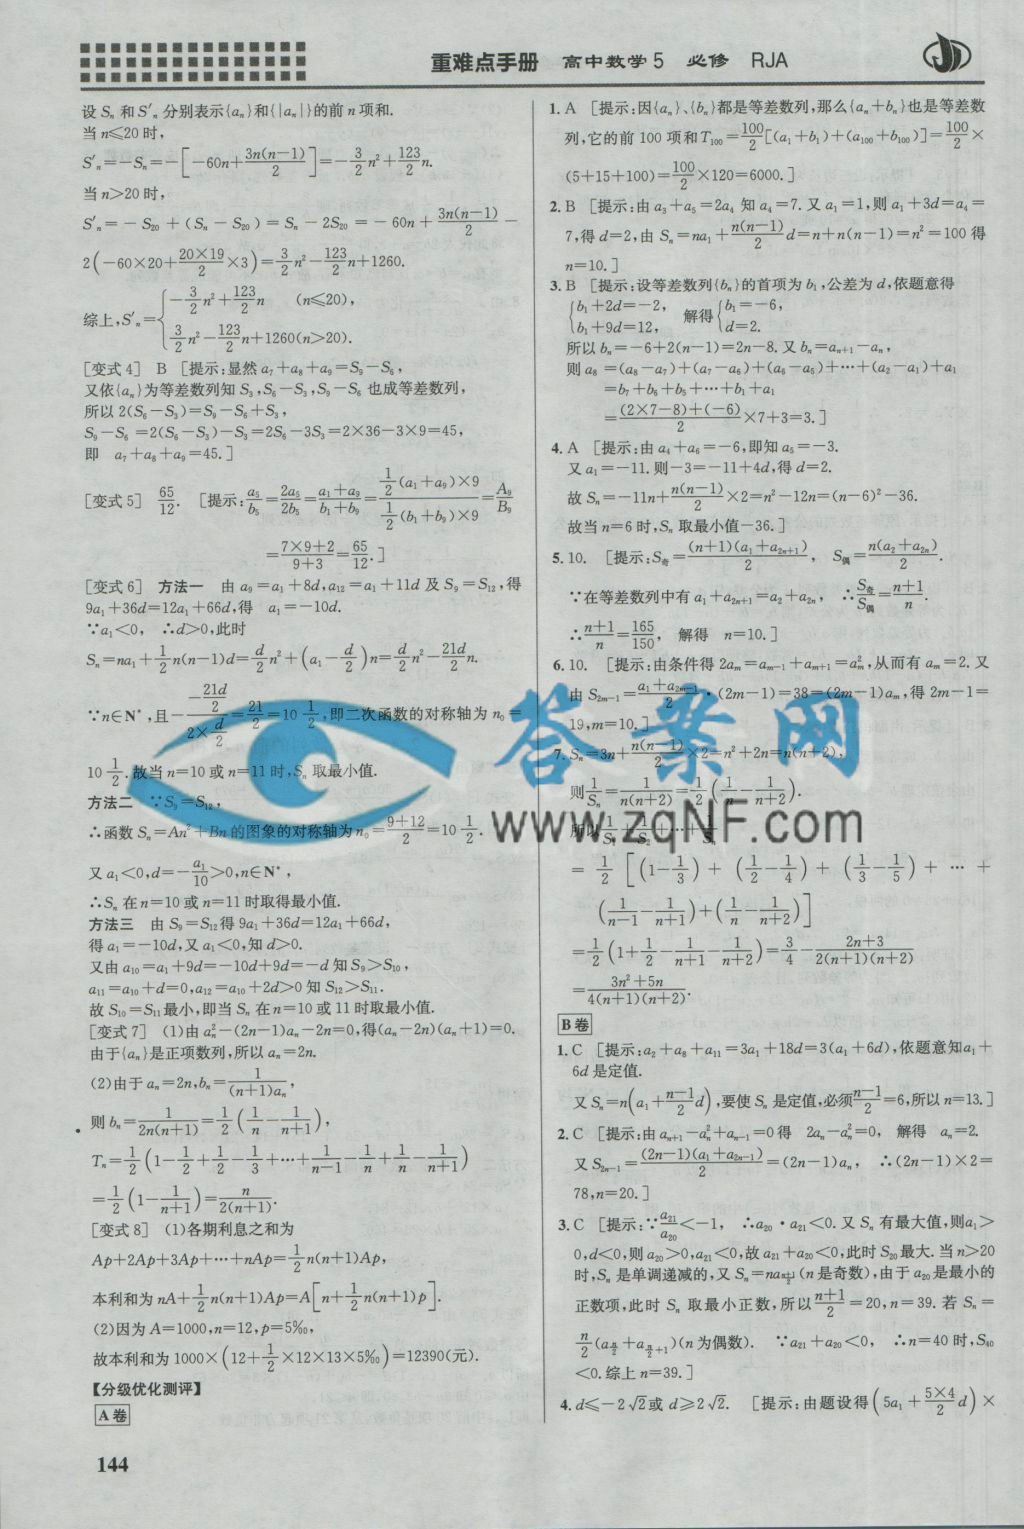 重难点手册 高中数学5 必修 RJA
设 Sₙ 和 S′ₙ 分别表示{aₙ}和{|aₙ|}的前 n 项和.
当 n≤20 时,
S′ₙ=-Sₙ=-[-60n+3n(n-1)/2]=-3/2 n²+123/2 n.
当 n>20 时,
S′ₙ=-S₂₀+(Sₙ-S₂₀)=Sₙ-2S₂₀=-60n+3n(n-1)/2-
2(-60×20+20×19/2×3)=3/2 n²-123/2 n+1260.
综上,S′ₙ={-3/2 n²+123/2 n (n≤20),
3/2 n²-123/2 n+1260(n>20).
[变式4] B [提示:显然 a₇+a₈+a₉=S₉-S₆,
又依{aₙ}为等差数列知 S₃,S₆-S₃,S₉-S₆ 也成等差数列,
所以 2(S₆-S₃)=S₉-S₆+S₃,
S₉-S₆=2(S₆-S₃)-S₃=2S₆-3S₃=2×36-3×9=45,
即 a₇+a₈+a₉=45.]
[变式5] 65/12. [提示:a₅/b₅=2a₅/2b₅=(a₁+a₉)/(b₁+b₉)=(1/2(a₁+a₉)×9)/(1/2(b₁+b₉)×9)=A₉/B₉
=(7×9+2)/(9+3)=65/12.]
[变式6] 方法一 由 a₉=a₁+8d,a₁₂=a₁+11d 及 S₉=S₁₂,得
9a₁+36d=12a₁+66d,得 a₁=-10d.
∵a₁<0, ∴d>0,此时
Sₙ=na₁+1/2 n(n-1)d=d/2 n²+(a₁-d/2)n=d/2 n²-21d/2 n.
∵n∈N*,且-(-21d/2)/(2×d/2)=21/2=10 1/2,即二次函数的对称轴为 n₀=
10 1/2.故当 n=10 或 n=11 时,Sₙ 取最小值.
方法二 ∵S₉=S₁₂,
∴函数 Sₙ=An²+Bn 的图象的对称轴为 n₀=(9+12)/2=10 1/2.
又 a₁<0,d=-a₁/10>0,n∈N*,
∴Sₙ 在 n=10 或 n=11 时取得最小值.
方法三 由 S₉=S₁₂得 9a₁+36d=12a₁+66d,
得 a₁=-10d,又 a₁<0,知 d>0.
又由 a₁₀=a₁+9d=-10d+9d=-d 知 S₉>S₁₀,
a₁₁=a₁₀+d=0,a₁₂=a₁₀+2d>0 知 S₁₂>S₁₁.
故 S₁₀=S₁₁最小,即当 Sₙ 在 n=10 或 11 时取最小值.
[变式7] (1)由 aₙ²-(2n-1)aₙ-2n=0,得(aₙ-2n)(aₙ+1)=0.
由于{aₙ}是正项数列,所以 aₙ=2n.
(2)由于 aₙ=2n,bₙ=1/((n+1)aₙ),
则 bₙ=1/(2n(n+1))=1/2(1/n-1/(n+1)),
Tₙ=1/2(1-1/2+1/2-1/3+⋯+1/(n-1)-1/n+1/n-1/(n+1))
=1/2(1-1/(n+1))=n/(2(n+1)).
[变式8] (1)各期利息之和为
Ap+2Ap+3Ap+⋯+nAp=1/2 n(n+1)Ap,
本利和为 nA+1/2 n(n+1)Ap=A[n+1/2 n(n+1)p].
(2)因为 A=1000,n=12,p=5‰,
故本利和为 1000×(12+1/2×12×13×5‰)=12390(元).
【分级优化测评】
A卷
144
1. A [提示:因{aₙ}、{bₙ}都是等差数列,那么{aₙ+bₙ}也是等差数
列,它的前 100 项和 T₁₀₀=100/2[(a₁+b₁)+(a₁₀₀+b₁₀₀)]=100/2×
(5+15+100)=100/2×120=6000.]
2. B [提示:由 a₃+a₅=2a₄ 知 a₄=7.又 a₁=1,则 a₁+3d=a₄=
7,得 d=2,由 Sₙ=na₁+n(n-1)/2 d=n+n(n-1)=n²=100 得
n=10.]
3. B [提示:设等差数列{bₙ}的首项为 b₁,公差为 d,依题意得
{b₁+2d=-2, b₁+9d=12, 解得{b₁=-6, d=2.
所以 bₙ=-6+2(n-1)=2n-8.又 bₙ=aₙ₊₁-aₙ,
则 a₈=(a₈-a₇)+(a₇-a₆)+(a₆-a₅)+⋯+(a₂-a₁)+a₁
=b₇+b₆+b₅+⋯+b₁+a₁
=((2×7-8)+(-6))/2×7+3=3.]
4. A [提示:由 a₄+a₆=-6,即知 a₅=-3.
又 a₁=-11.则-3=-11+4d,得 d=2.
故 Sₙ=-11n+n(n-1)/2×2=n²-12n=(n-6)²-36.
故当 n=6 时,Sₙ 取最小值-36.]
5. 10. [提示:S奇=(n+1)(a₁+a₂ₙ₊₁)/2, S偶=n(a₂+a₂ₙ)/2.
∵在等差数列中有 a₁+a₂ₙ₊₁=a₂+a₂ₙ, ∴S奇/S偶=(n+1)/n.
∴(n+1)/n=165/150, 解得 n=10.]
6. 10. [提示:由条件得 2aₘ=aₘ₋₁+aₘ₊₁=aₘ²,从而有 aₘ=2.又
由 S₂ₘ₋₁=(a₁+a₂ₘ₋₁)/2·(2m-1)=38=(2m-1)aₘ,得 2m-1=
19,m=10.]
7. Sₙ=3n+n(n-1)/2×2=n²+2n=n(n+2),
则1/Sₙ=1/(n(n+2))=1/2(1/n-1/(n+2)).
所以1/S₁+1/S₂+⋯+1/Sₙ
=1/2[(1-1/3)+(1/2-1/4)+(1/3-1/5)+⋯+
(1/(n-1)-1/(n+1))+(1/n-1/(n+2))]
=1/2(1+1/2-1/(n+1)-1/(n+2))=3/4-(2n+3)/(2(n+1)(n+2))
=(3n²+5n)/(4(n+1)(n+2)).
B卷
1. C [提示:a₂+a₈+a₁₁=3a₁+18d=3(a₁+6d),依题意知a₁+
6d 是定值.
又 Sₙ=n(a₁+(n-1)/2 d),要使 Sₙ 是定值,必须(n-1)/2=6,所以 n=13.]
2. C [提示:由 aₙ₊₁-aₙ²+aₙ₋₁=0得 2aₙ-aₙ²=0, 解得 aₙ=2.
又 S₂ₙ₋₁=(2n-1)(a₁+a₂ₙ₋₁)/2=(2n-1)aₙ, ∴(2n-1)×2=
78,n=20.]
3. C [提示:∵a₂₁/a₂₀<-1, ∴a₂₀·a₂₁<0.又 Sₙ 有最大值,则a₁>
0,d<0,则 a₂₀>0,a₂₁<0,故 a₂₁+a₂₀<0,此时 S₂₀最大.当 n>20
时,Sₙ 是单调递减的,又 Sₙ=na₍ₙ₊₁₎/₂(n 是奇数),由于 a₂₀是最小的
正数项,此时 Sₙ 取最小正数,所以(n+1)/2=20,n=39.若 Sₙ=
n/2(aₙ/₂+aₙ/₂₊₁)(n 为偶数). ∵a₂₁+a₂₀<0, ∴n=40 时,S₄₀
<0.综上 n=39.]
4. d≤-2√2或 d≥2√2. [提示:由题设得(5a₁+5×4/2 d)×
答案网
www.zqNF.com